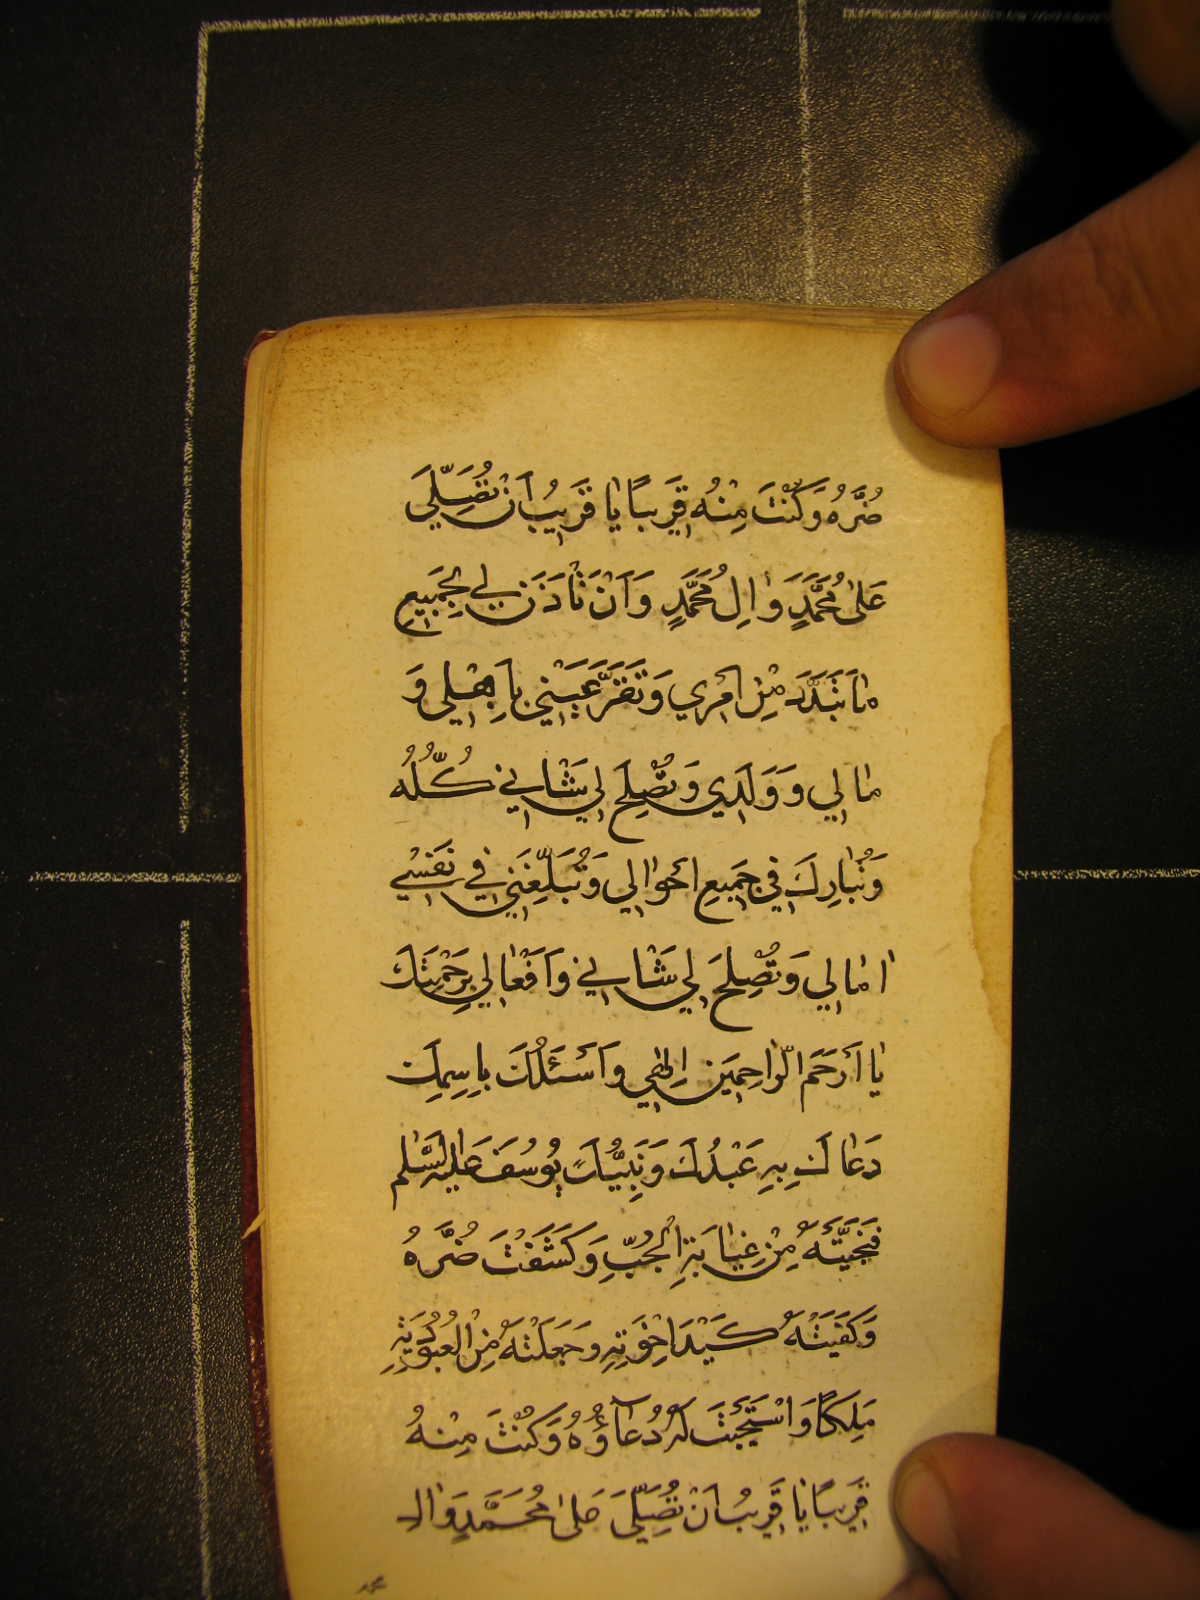 ضُرَّهُ وَكُنْتَ مِنْهُ قَرِيبًا يَا قَرِيبُ اَنْ تُصَلِّيَ
عَلىٰ مُحَمَّدٍ وَاٰلِ مُحَمَّدٍ وَاَنْ تَأذَنَ لِي بِجَمِيعِ
مَا تَبَدَّدَ مِنْ اَمْرِي وَتُقِرَّ عَيْنِي بِاَهْلِي وَ
مَالِي وَوَلَدِي وَتُصْلِحَ لِي شَانِي كُلَّهُ
وَتُبَارِكَ فِي جَمِيعِ اَحْوَالِي وَتُبَلِّغَنِي فِي نَفْسِي
اٰمَالِي وَتُصْلِحَ لِي شَانِي وَاَفْعَالِي بِرَحْمَتِكَ
يَا اَرْحَمَ الرَّاحِمِينَ اِلٰهِي وَاَسْئَلُكَ بِاسْمِكَ
دَعَاكَ بِهِ عَبْدُكَ وَنَبِيُّكَ يُوسُفَ عَلَيْهِ السَّلٰم
فَنَجَّيْتَهُ مِنْ غِيَابَةِ الْجُبِّ وَكَشَفْتَ ضُرَّهُ
وَكَفَيْتَهُ كَيْدَ اِخْوَتِهِ وَجَعَلْتَهُ مِنَ الْعُبُودِيَّةِ
مَلِكًا وَاسْتَجَبْتَ لَهُ دُعَآؤُهُ وَكُنْتَ مِنْهُ
قَرِيبًا يَا قَرِيبُ اَنْ تُصَلِّيَ عَلىٰ مُحَمَّدٍ وَاٰلِ
محمد